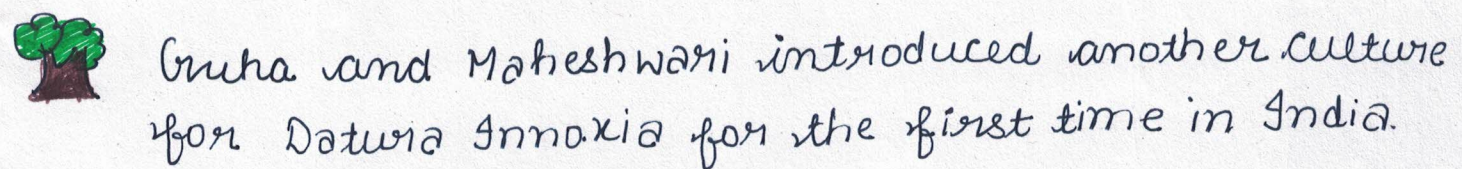 Guha and Maheshwari introduced another culture
for Datura Innoxia for the first time in India.